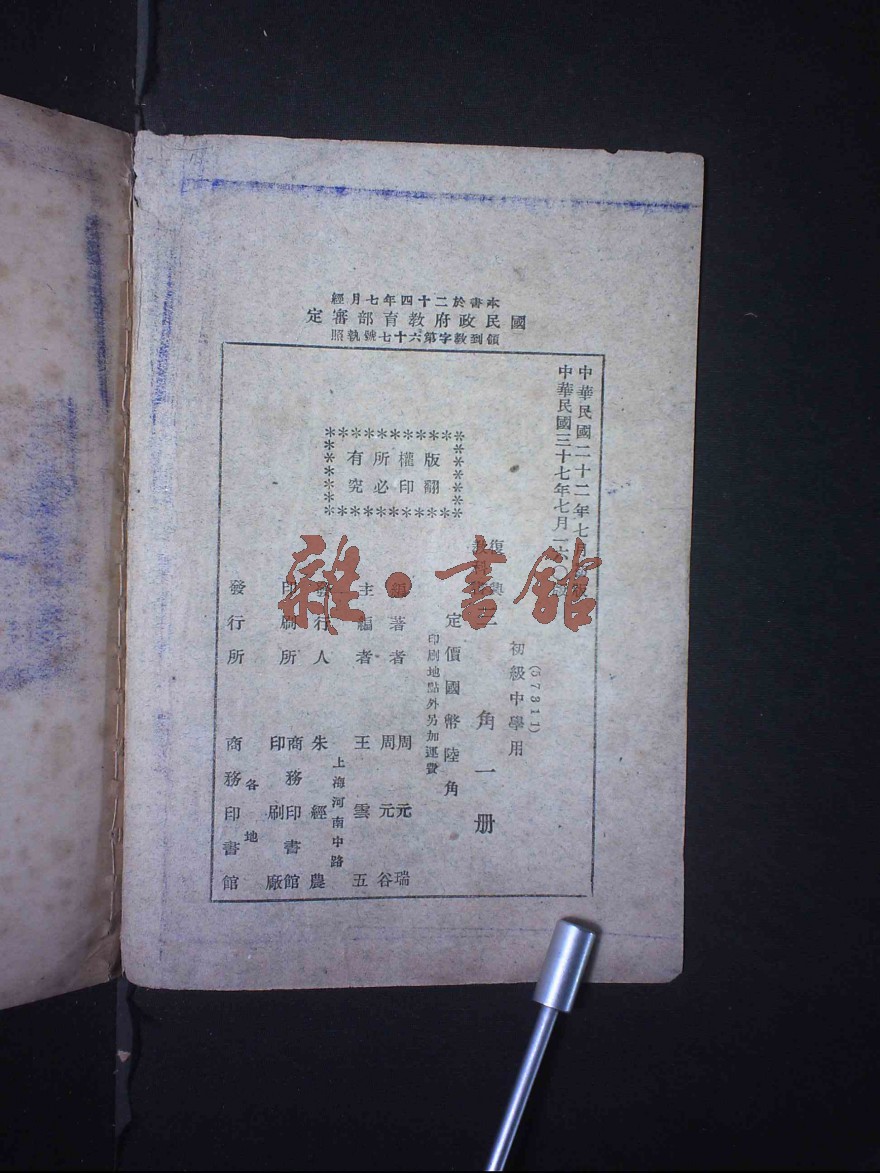 本書於二十四年七月經
國民政府教育部審定
領到教字第六十七號執照
中華民國二十二年七月
中華民國三十七年七月一六〇
(57311)
初級中學用
復興
教科書
三角一册
定價國幣陸角
印刷地點外另加運費
版權所有
翻印必究
編著者 周元瑞
周元谷
主編者 王雲五
上海河南中路
發行人 朱經農
印刷所 商務印書館
印刷廠
發行所 各地
商務印書館
雜·書館